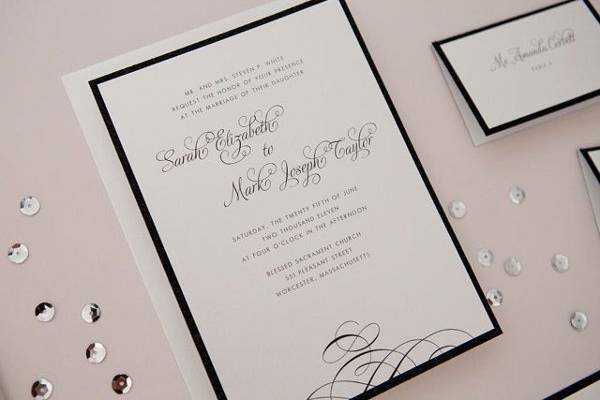 MR. AND MRS. STEVEN P. WHITE
REQUEST THE HONOR OF YOUR PRESENCE
AT THE MARRIAGE OF THEIR DAUGHTER
Sarah Elizabeth
to
Mark Joseph Taylor
SATURDAY, THE TWENTY FIFTH OF JUNE
TWO THOUSAND ELEVEN
AT FOUR O'CLOCK IN THE AFTERNOON
BLESSED SACRAMENT CHURCH
551 PLEASANT STREET
WORCESTER, MASSACHUSETTS
Amanda Corbett
TABLE